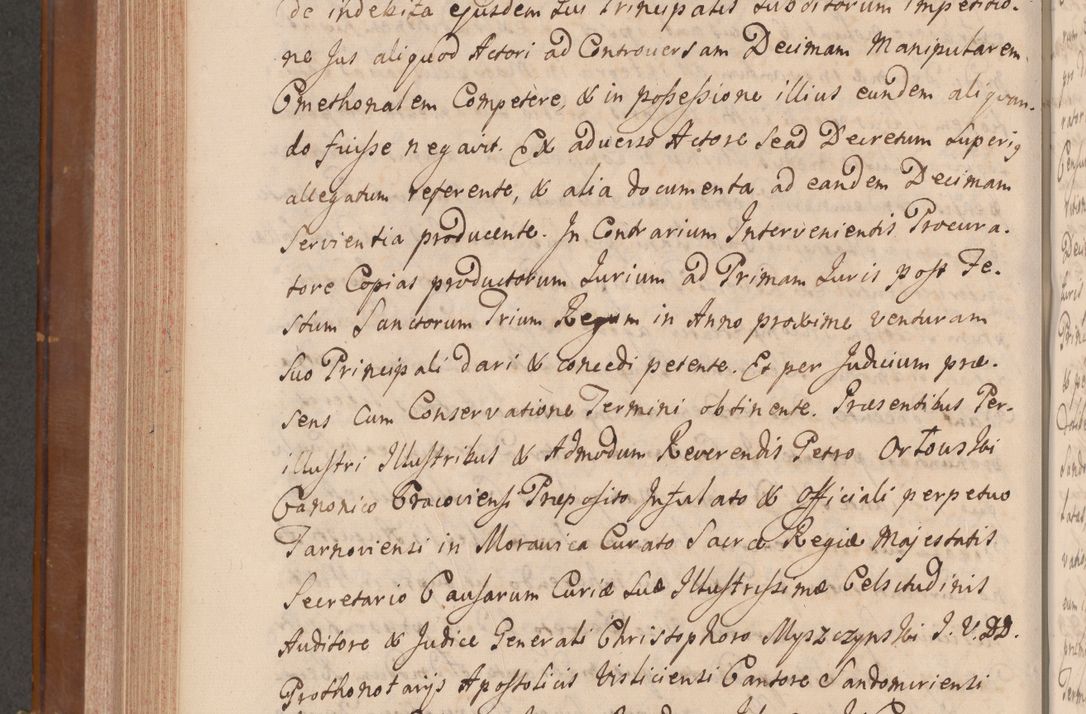 de indebita ejusdem sui Principalis subditorum impetitio-
ne Jus aliquod Actori ad Controversam Decimam Manipularem
Cmethonalem Competere, & in possessione illius eundem aliquan-
do fuisse negavit. Ex adverso Actore sead Decretum superig
allegatum referente, & alia documenta ad eandem Decimam
servientia producente. In Contrarium Intervenientis Procura-
tore Copias productorum Iurium ad Primam Iuris post Fe-
stum Sanctorum Trium Regum in Anno proxime venturam
suo Principali dari & concedi petente. Et per Judicium præ-
sens cum Conservatione Termini obtinente. Præsentibus Per-
illustri Illustribus & Admodum Reverendis Petro Ortouski
Canonico Cracoviensi Præposito Infulato & Officiali perpetuo
Tarnoviensi in Moravica Curato Sacræ Regiæ Majestatis
Secretario Causarum Curiæ suæ Illustrissimæ Celsitudinis
Auditore & Judice Generali Christophoro Myszczynski J. V. DD.
Prothonotarijs Apostolicis Visliciensi Cantore Sandomiriensi